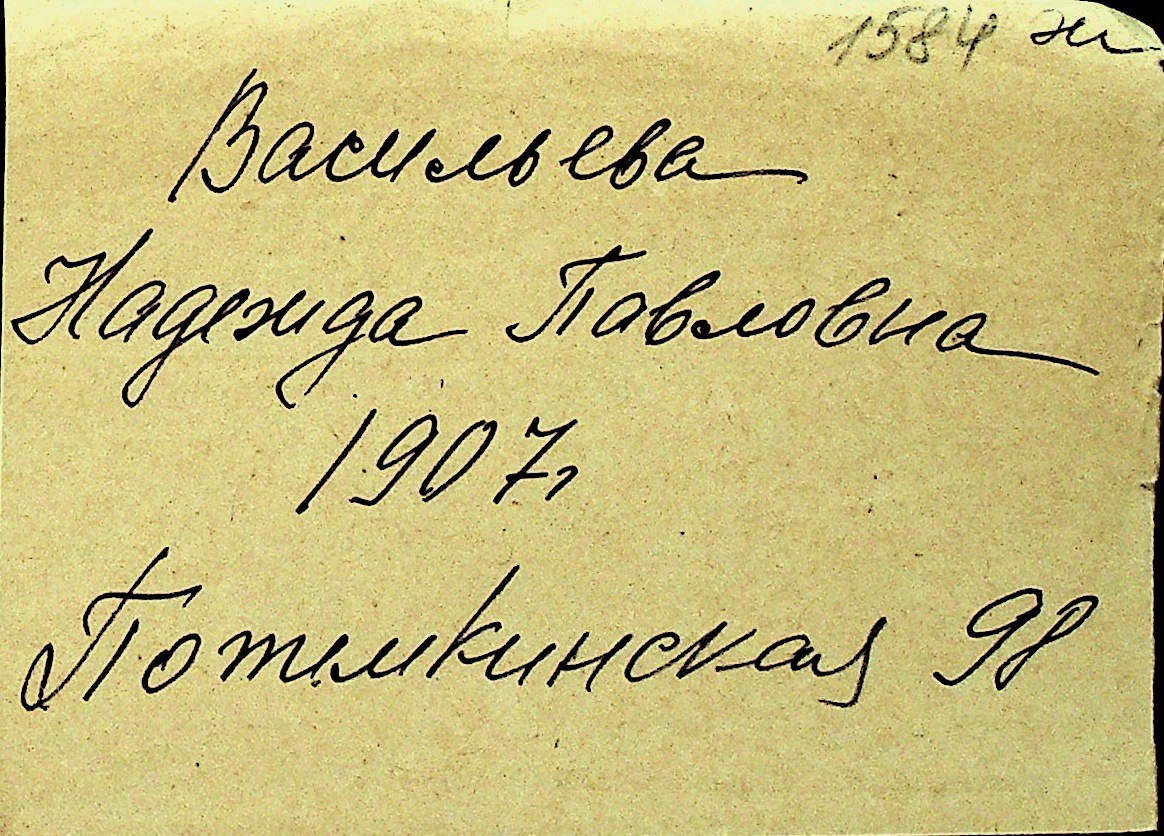 1584 ж
Васильева
Надежда Павловна
1907г
Потемкинская 98